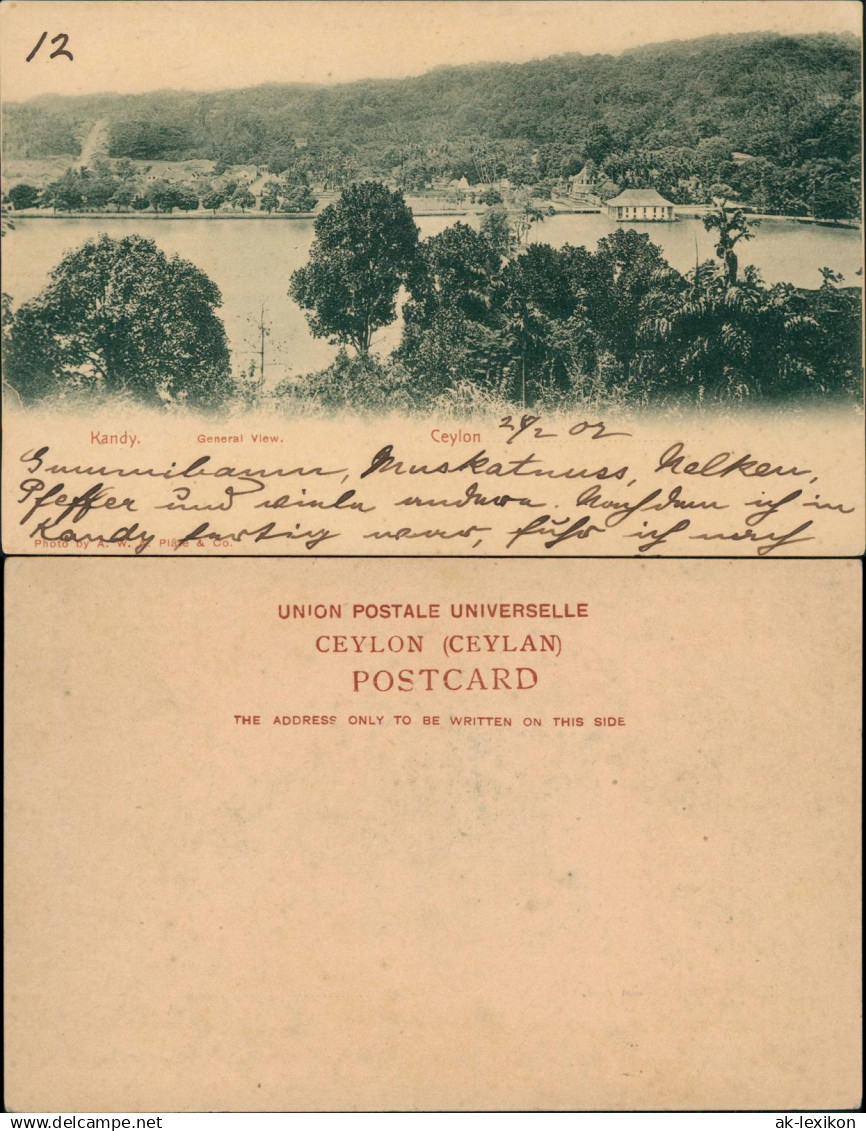 12
Kandy. General View. Ceylon 24/2 02
Gummibaum, Muskatnuss, Nelken,
Pfeffer und viele andere. Nachdem ich in
Kandy fertig war, fuhr ich nach
Photo by A. W. A. Plâté & Co.
UNION POSTALE UNIVERSELLE
CEYLON (CEYLAN)
POSTCARD
THE ADDRESS ONLY TO BE WRITTEN ON THIS SIDE
delcampe.net
ak-lexikon